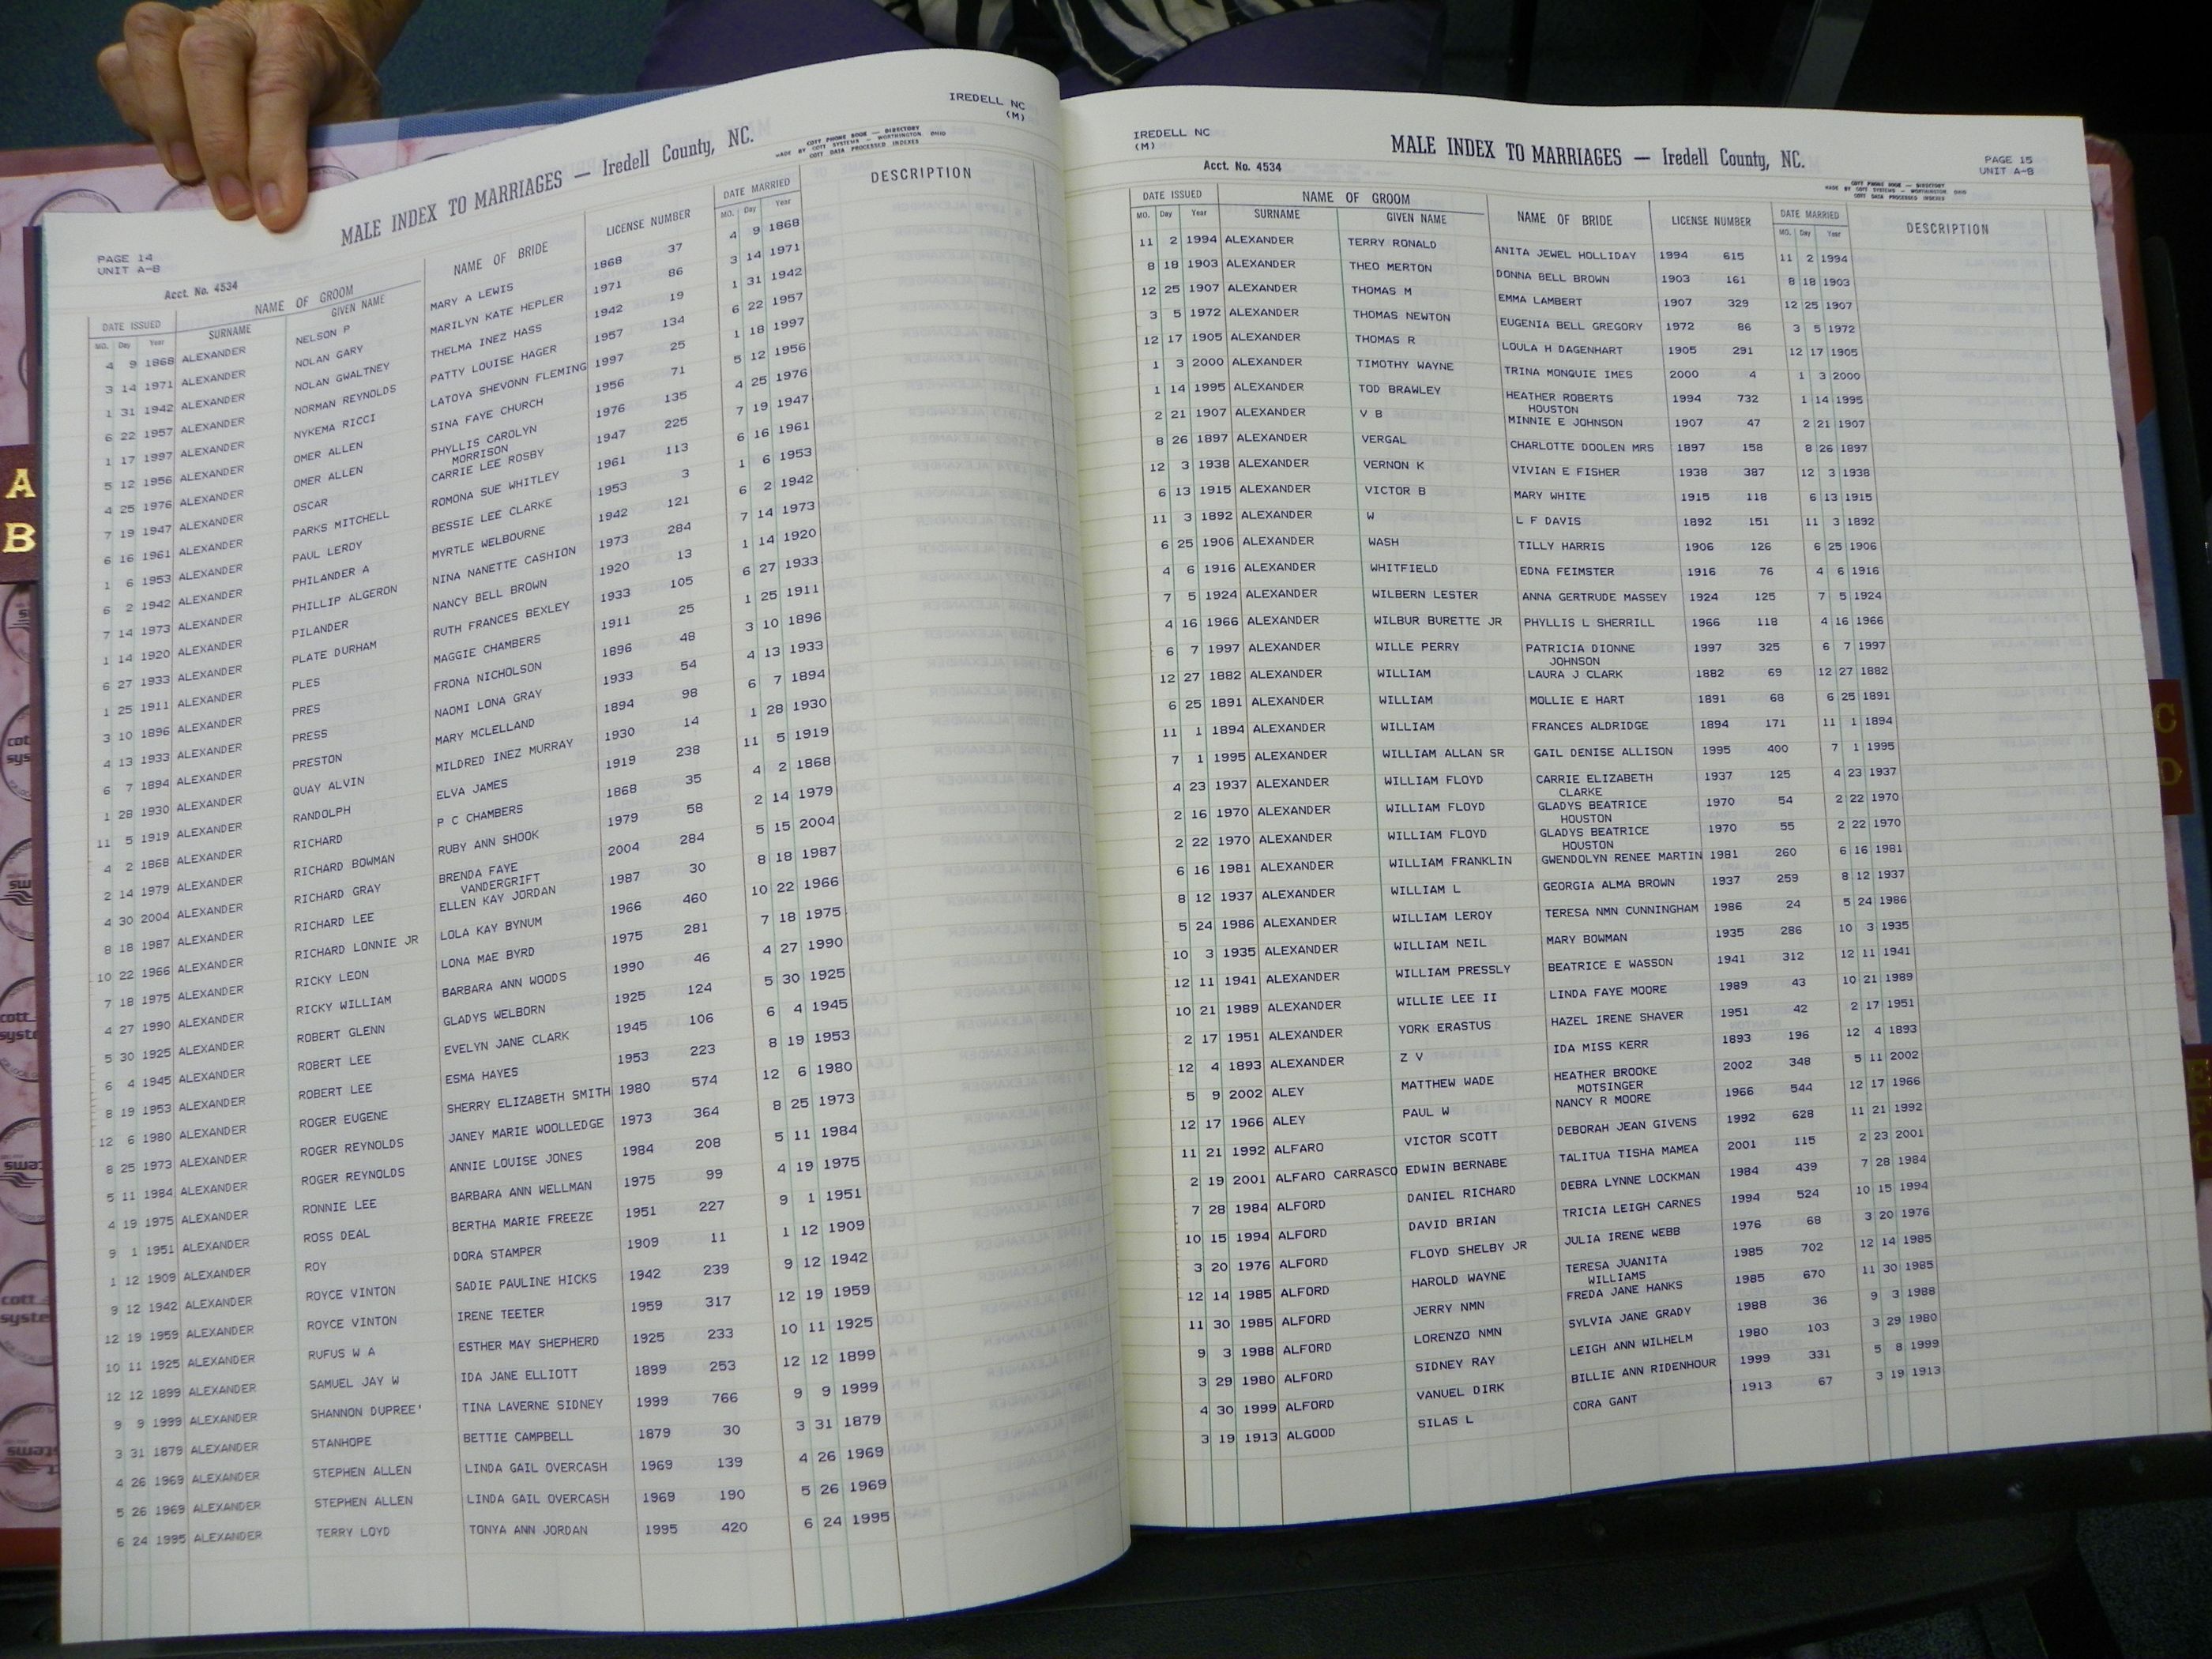 IREDELL NC
(M)
MALE INDEX TO MARRIAGES — Iredell County, NC.
COTT PHONE BOOK — DIRECTORY
MADE BY COTT SYSTEMS — WORTHINGTON OHIO
COTT DATA PROCESSED INDEXES
PAGE 14
UNIT A-B
Acct. No. 4534
DATE ISSUED NAME OF GROOM NAME OF BRIDE LICENSE NUMBER DATE MARRIED DESCRIPTION
MO. Day Year SURNAME GIVEN NAME MO. Day Year
4 9 1868 ALEXANDER NELSON P MARY A LEWIS 1868 37 4 9 1868
3 14 1971 ALEXANDER NOLAN GARY MARILYN KATE HEPLER 1971 86 3 14 1971
1 31 1942 ALEXANDER NOLAN GWALTNEY THELMA INEZ HASS 1942 19 1 31 1942
6 22 1957 ALEXANDER NORMAN REYNOLDS PATTY LOUISE HAGER 1957 134 6 22 1957
1 17 1997 ALEXANDER NYKEMA RICCI LATOYA SHEVONN FLEMING 1997 25 1 18 1997
5 12 1956 ALEXANDER OMER ALLEN SINA FAYE CHURCH 1956 71 5 12 1956
4 25 1976 ALEXANDER OMER ALLEN PHYLLIS CAROLYN 1976 135 4 25 1976
MORRISON
7 19 1947 ALEXANDER OSCAR CARRIE LEE ROSBY 1947 225 7 19 1947
6 16 1961 ALEXANDER PARKS MITCHELL ROMONA SUE WHITLEY 1961 113 6 16 1961
1 6 1953 ALEXANDER PAUL LEROY BESSIE LEE CLARKE 1953 3 1 6 1953
6 2 1942 ALEXANDER PHILANDER A MYRTLE WELBOURNE 1942 121 6 2 1942
7 14 1973 ALEXANDER PHILLIP ALGERON NINA NANETTE CASHION 1973 284 7 14 1973
1 14 1920 ALEXANDER PILANDER NANCY BELL BROWN 1920 13 1 14 1920
6 27 1933 ALEXANDER PLATE DURHAM RUTH FRANCES BEXLEY 1933 105 6 27 1933
1 25 1911 ALEXANDER PLES MAGGIE CHAMBERS 1911 25 1 25 1911
3 10 1896 ALEXANDER PRES FRONA NICHOLSON 1896 48 3 10 1896
4 13 1933 ALEXANDER PRESS NAOMI LONA GRAY 1933 54 4 13 1933
6 7 1894 ALEXANDER PRESTON MARY MCLELLAND 1894 98 6 7 1894
1 28 1930 ALEXANDER QUAY ALVIN MILDRED INEZ MURRAY 1930 14 1 28 1930
11 5 1919 ALEXANDER RANDOLPH ELVA JAMES 1919 238 11 5 1919
4 2 1868 ALEXANDER RICHARD P C CHAMBERS 1868 35 4 2 1868
2 14 1979 ALEXANDER RICHARD BOWMAN RUBY ANN SHOOK 1979 58 2 14 1979
4 30 2004 ALEXANDER RICHARD GRAY BRENDA FAYE 2004 284 5 15 2004
VANDERGRIFT
8 18 1987 ALEXANDER RICHARD LEE ELLEN KAY JORDAN 1987 30 8 18 1987
10 22 1966 ALEXANDER RICHARD LONNIE JR LOLA KAY BYNUM 1966 460 10 22 1966
7 18 1975 ALEXANDER RICKY LEON LONA MAE BYRD 1975 281 7 18 1975
4 27 1990 ALEXANDER RICKY WILLIAM BARBARA ANN WOODS 1990 46 4 27 1990
5 30 1925 ALEXANDER ROBERT GLENN GLADYS WELBORN 1925 124 5 30 1925
6 4 1945 ALEXANDER ROBERT LEE EVELYN JANE CLARK 1945 106 6 4 1945
8 19 1953 ALEXANDER ROBERT LEE ESMA HAYES 1953 223 8 19 1953
12 6 1980 ALEXANDER ROGER EUGENE SHERRY ELIZABETH SMITH 1980 574 12 6 1980
8 25 1973 ALEXANDER ROGER REYNOLDS JANEY MARIE WOOLLEDGE 1973 364 8 25 1973
5 11 1984 ALEXANDER ROGER REYNOLDS ANNIE LOUISE JONES 1984 208 5 11 1984
4 19 1975 ALEXANDER RONNIE LEE BARBARA ANN WELLMAN 1975 99 4 19 1975
9 1 1951 ALEXANDER ROSS DEAL BERTHA MARIE FREEZE 1951 227 9 1 1951
1 12 1909 ALEXANDER ROY DORA STAMPER 1909 11 1 12 1909
9 12 1942 ALEXANDER ROYCE VINTON SADIE PAULINE HICKS 1942 239 9 12 1942
12 19 1959 ALEXANDER ROYCE VINTON IRENE TEETER 1959 317 12 19 1959
10 11 1925 ALEXANDER RUFUS W A ESTHER MAY SHEPHERD 1925 233 10 11 1925
12 12 1899 ALEXANDER SAMUEL JAY W IDA JANE ELLIOTT 1899 253 12 12 1899
9 9 1999 ALEXANDER SHANNON DUPREE' TINA LAVERNE SIDNEY 1999 766 9 9 1999
3 31 1879 ALEXANDER STANHOPE BETTIE CAMPBELL 1879 30 3 31 1879
4 26 1969 ALEXANDER STEPHEN ALLEN LINDA GAIL OVERCASH 1969 139 4 26 1969
5 26 1969 ALEXANDER STEPHEN ALLEN LINDA GAIL OVERCASH 1969 190 5 26 1969
6 24 1995 ALEXANDER TERRY LOYD TONYA ANN JORDAN 1995 420 6 24 1995
IREDELL NC
(M)
MALE INDEX TO MARRIAGES — Iredell County, NC.
PAGE 15
UNIT A-B
Acct. No. 4534
COTT PHONE BOOK — DIRECTORY
MADE BY COTT SYSTEMS — WORTHINGTON OHIO
COTT DATA PROCESSED INDEXES
DATE ISSUED NAME OF GROOM NAME OF BRIDE LICENSE NUMBER DATE MARRIED DESCRIPTION
MO. Day Year SURNAME GIVEN NAME MO. Day Year
11 2 1994 ALEXANDER TERRY RONALD ANITA JEWEL HOLLIDAY 1994 615 11 2 1994
8 18 1903 ALEXANDER THEO MERTON DONNA BELL BROWN 1903 161 8 18 1903
12 25 1907 ALEXANDER THOMAS M EMMA LAMBERT 1907 329 12 25 1907
3 5 1972 ALEXANDER THOMAS NEWTON EUGENIA BELL GREGORY 1972 86 3 5 1972
12 17 1905 ALEXANDER THOMAS R LOULA H DAGENHART 1905 291 12 17 1905
1 3 2000 ALEXANDER TIMOTHY WAYNE TRINA MONQUIE IMES 2000 4 1 3 2000
1 14 1995 ALEXANDER TOD BRAWLEY HEATHER ROBERTS 1994 732 1 14 1995
HOUSTON
2 21 1907 ALEXANDER V B MINNIE E JOHNSON 1907 47 2 21 1907
8 26 1897 ALEXANDER VERGAL CHARLOTTE DOOLEN MRS 1897 158 8 26 1897
12 3 1938 ALEXANDER VERNON K VIVIAN E FISHER 1938 387 12 3 1938
6 13 1915 ALEXANDER VICTOR B MARY WHITE 1915 118 6 13 1915
11 3 1892 ALEXANDER W L F DAVIS 1892 151 11 3 1892
6 25 1906 ALEXANDER WASH TILLY HARRIS 1906 126 6 25 1906
4 6 1916 ALEXANDER WHITFIELD EDNA FEIMSTER 1916 76 4 6 1916
7 5 1924 ALEXANDER WILBERN LESTER ANNA GERTRUDE MASSEY 1924 125 7 5 1924
4 16 1966 ALEXANDER WILBUR BURETTE JR PHYLLIS L SHERRILL 1966 118 4 16 1966
6 7 1997 ALEXANDER WILLE PERRY PATRICIA DIONNE 1997 325 6 7 1997
JOHNSON
12 27 1882 ALEXANDER WILLIAM LAURA J CLARK 1882 69 12 27 1882
6 25 1891 ALEXANDER WILLIAM MOLLIE E HART 1891 68 6 25 1891
11 1 1894 ALEXANDER WILLIAM FRANCES ALDRIDGE 1894 171 11 1 1894
7 1 1995 ALEXANDER WILLIAM ALLAN SR GAIL DENISE ALLISON 1995 400 7 1 1995
4 23 1937 ALEXANDER WILLIAM FLOYD CARRIE ELIZABETH 1937 125 4 23 1937
CLARKE
2 16 1970 ALEXANDER WILLIAM FLOYD GLADYS BEATRICE 1970 54 2 22 1970
HOUSTON
2 22 1970 ALEXANDER WILLIAM FLOYD GLADYS BEATRICE 1970 55 2 22 1970
HOUSTON
6 16 1981 ALEXANDER WILLIAM FRANKLIN GWENDOLYN RENEE MARTIN 1981 260 6 16 1981
8 12 1937 ALEXANDER WILLIAM L GEORGIA ALMA BROWN 1937 259 8 12 1937
5 24 1986 ALEXANDER WILLIAM LEROY TERESA NMN CUNNINGHAM 1986 24 5 24 1986
10 3 1935 ALEXANDER WILLIAM NEIL MARY BOWMAN 1935 286 10 3 1935
12 11 1941 ALEXANDER WILLIAM PRESSLY BEATRICE E WASSON 1941 312 12 11 1941
10 21 1989 ALEXANDER WILLIE LEE II LINDA FAYE MOORE 1989 43 10 21 1989
2 17 1951 ALEXANDER YORK ERASTUS HAZEL IRENE SHAVER 1951 42 2 17 1951
12 4 1893 ALEXANDER Z V IDA MISS KERR 1893 196 12 4 1893
5 9 2002 ALEY MATTHEW WADE HEATHER BROOKE 2002 348 5 11 2002
MOTSINGER
12 17 1966 ALEY PAUL W NANCY R MOORE 1966 544 12 17 1966
11 21 1992 ALFARO VICTOR SCOTT DEBORAH JEAN GIVENS 1992 628 11 21 1992
2 19 2001 ALFARO CARRASCO EDWIN BERNABE TALITUA TISHA MAMEA 2001 115 2 23 2001
7 28 1984 ALFORD DANIEL RICHARD DEBRA LYNNE LOCKMAN 1984 439 7 28 1984
10 15 1994 ALFORD DAVID BRIAN TRICIA LEIGH CARNES 1994 524 10 15 1994
3 20 1976 ALFORD FLOYD SHELBY JR JULIA IRENE WEBB 1976 68 3 20 1976
12 14 1985 ALFORD HAROLD WAYNE TERESA JUANITA 1985 702 12 14 1985
WILLIAMS
11 30 1985 ALFORD JERRY NMN FREDA JANE HANKS 1985 670 11 30 1985
9 3 1988 ALFORD LORENZO NMN SYLVIA JANE GRADY 1988 36 9 3 1988
3 29 1980 ALFORD SIDNEY RAY LEIGH ANN WILHELM 1980 103 3 29 1980
4 30 1999 ALFORD VANUEL DIRK BILLIE ANN RIDENHOUR 1999 331 5 8 1999
3 19 1913 ALGOOD SILAS L CORA GANT 1913 67 3 19 1913
A
B
C
D